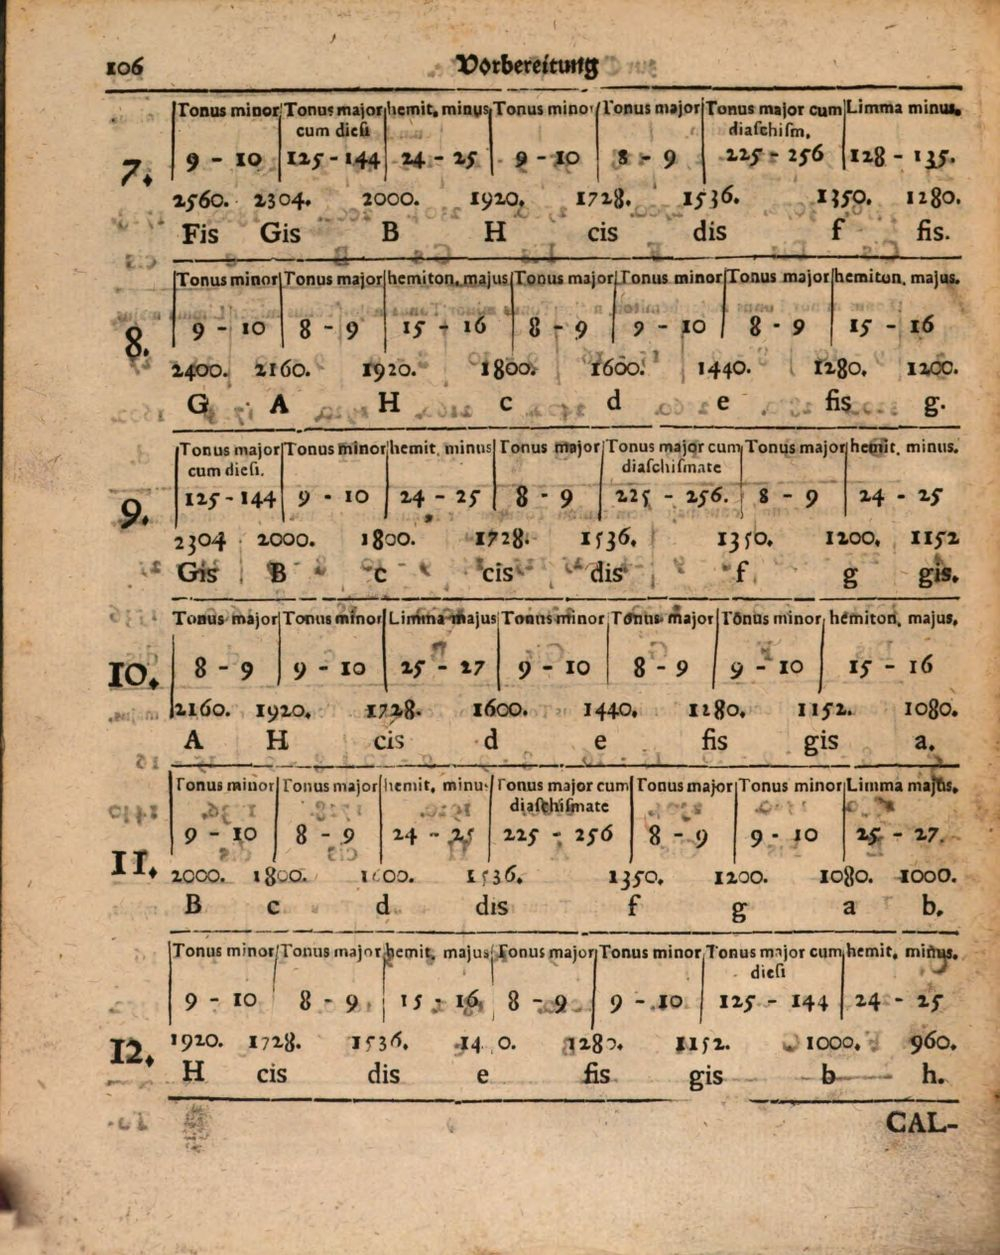 106 Vorbereitung
Tonus minor Tonus major hemit, minus Tonus minor Tonus major Tonus major cum Limma minus.
cum diesi diaschism,
7. 9 - 10 125 - 144 24 - 25 9 - 10 8 - 9 225 - 256 128 - 135.
2560. 2304. 2000. 1920. 1728. 1536. 1350. 1280.
Fis Gis B H cis dis f fis.
Tonus minor Tonus major hemiton, majus Tonus major Tonus minor Tonus major hemiton, majus.
8. 9 - 10 8 - 9 15 - 16 8 - 9 9 - 10 8 - 9 15 - 16
2400. 2160. 1920. 1800. 1600. 1440. 1280. 1200.
G A H c d e fis g.
Tonus major Tonus minor hemit, minus Tonus major Tonus major cum Tonus major hemit, minus.
cum diesi. diaschismate
9. 125 - 144 9 - 10 24 - 25 8 - 9 225 - 256. 8 - 9 24 - 25
2304 2000. 1800. 1728. 1536. 1350. 1200. 1152
Gis B c cis dis f g gis.
Tonus major Tonus minor Limma majus Tonus minor Tonus major Tonus minor hemiton, majus,
10. 8 - 9 9 - 10 25 - 27 9 - 10 8 - 9 9 - 10 15 - 16
2160. 1920. 1728. 1600. 1440. 1280. 1152. 1080.
A H cis d e fis gis a.
Tonus minor Tonus major hemit, minus Tonus major cum Tonus major Tonus minor Limma majus,
diaschismate
11. 9 - 10 8 - 9 24 - 25 225 - 256 8 - 9 9 - 10 25 - 27.
2000. 1800. 1600. 1536. 1350. 1200. 1080. 1000.
B c d dis f g a b.
Tonus minor Tonus major hemit, majus Tonus major Tonus minor Tonus major cum hemit, minus,
diesi
9 - 10 8 - 9 15 - 16 8 - 9 9 - 10 125 - 144 24 - 25
12. 1920. 1728. 1536. 14 0. 1280. 1152. 1000. 960.
H cis dis e fis gis b h.
CAL-